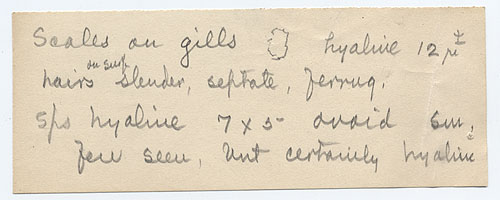 Scales on gills hyaline 12 μ±
on surf.
hairs slender, septate, ferrug.
Sps hyaline 7 x 5 ovoid sm,
few seen, but certainly hyaline